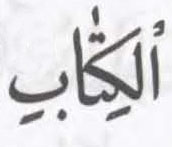 ٱلكِتٰابِ